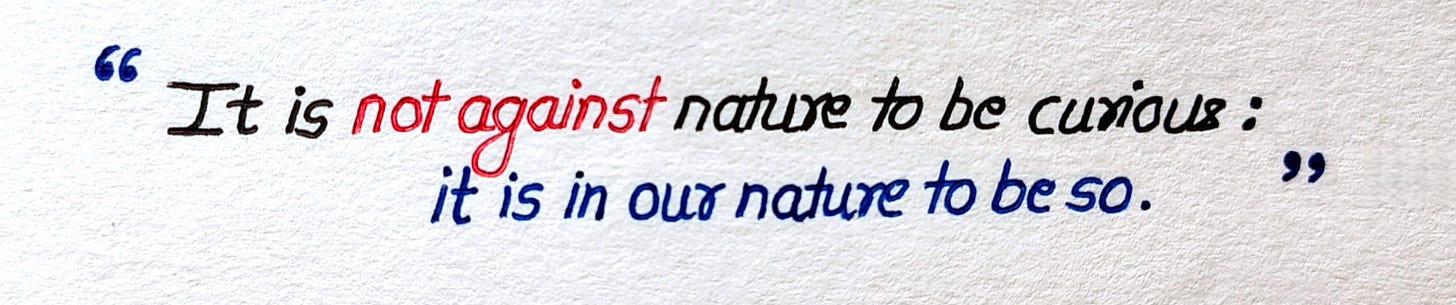 “ It is not against nature to be curious :
it is in our nature to be so. ”